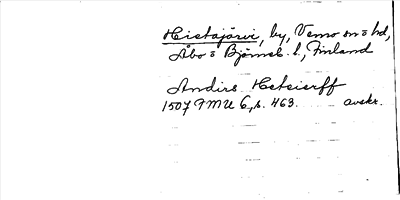 Hietajärvi, by, Vemo sn o hd,
Åbo o Björneb. l., Finland
Andirs Heteierff
1507 FMU 6, s. 463. avskr.